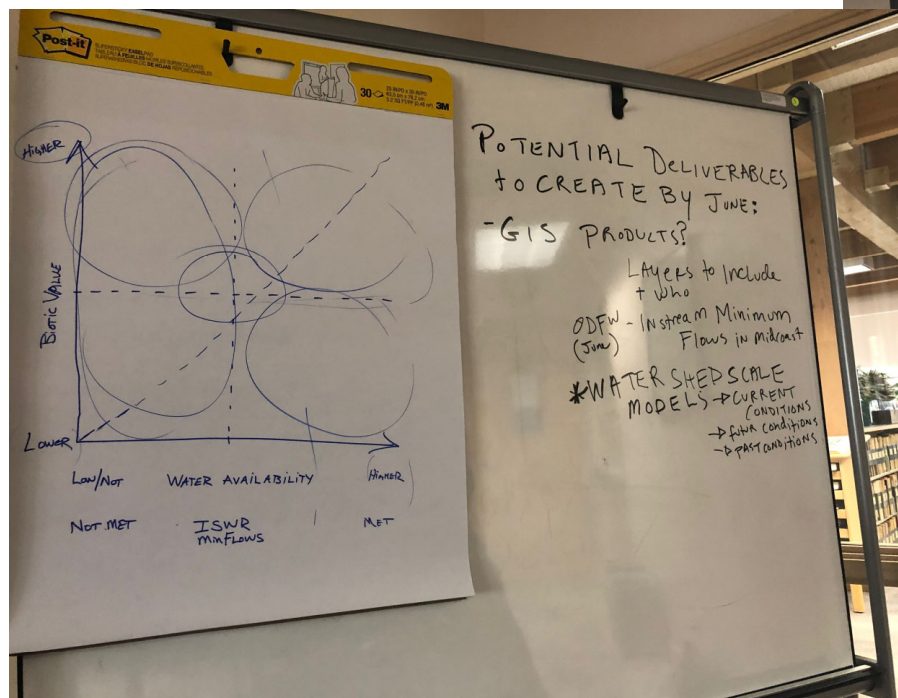 Post-it
SUPERSTICKY EASEL PAD
30
3M
HIGHER
BIOTIC VALUE
LOWER
LOW/NOT WATER AVAILABILITY HIGHER
NOT MET ISWR MET
MINFLOWS
POTENTIAL DELIVERABLES
to CREATE BY JUNE:
- GIS PRODUCTS?
LAYERS to INCLUDE
+ WHO
ODFW - INSTREAM MINIMUM
(June) FLOWS IN MIDCOAST
*WATERSHED SCALE
MODELS → CURRENT
CONDITIONS
→ futur conditions
→ past conditions